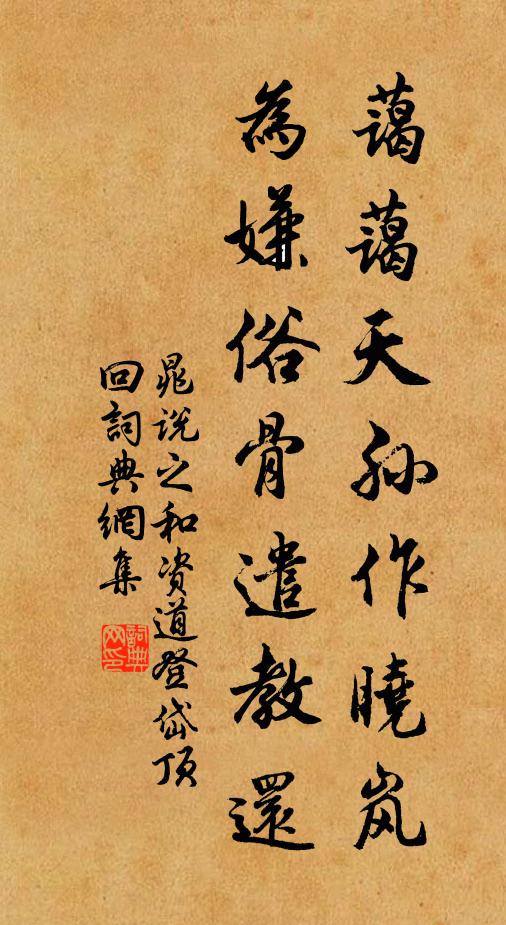 藹藹天孙作曉岚
為嫌俗骨遣教還
晁说之和资道登岱顶
回詞典網集
詞典网印